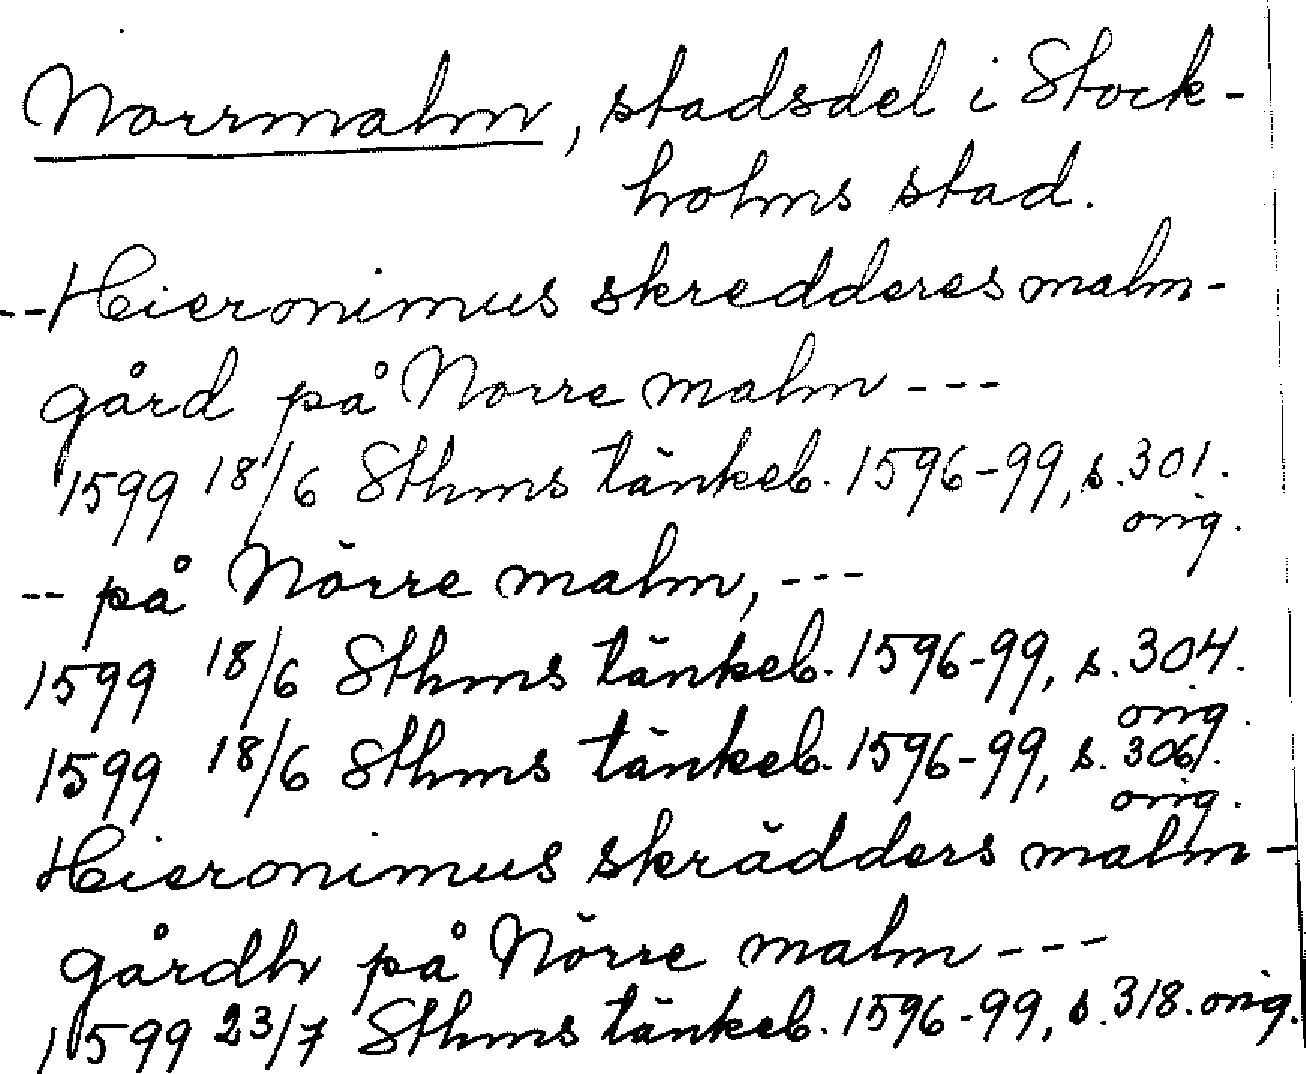 Norrmalm, stadsdel i Stock-
holms stad.
--Hieronimus skredderes malm-
gård på Norre malm ---
1599 18/6 Sthms tänkeb. 1596-99, s. 301.
orig.
-- på Nörre malm, ---
1599 18/6 Sthms tänkeb. 1596-99, s. 304.
orig.
1599 18/6 Sthms tänkeb. 1596-99, s. 306.
orig.
Hieronimus skrädders malm-
gårdh på Nörre malm ---
1599 23/7 Sthms tänkeb. 1596-99, s. 318. orig.